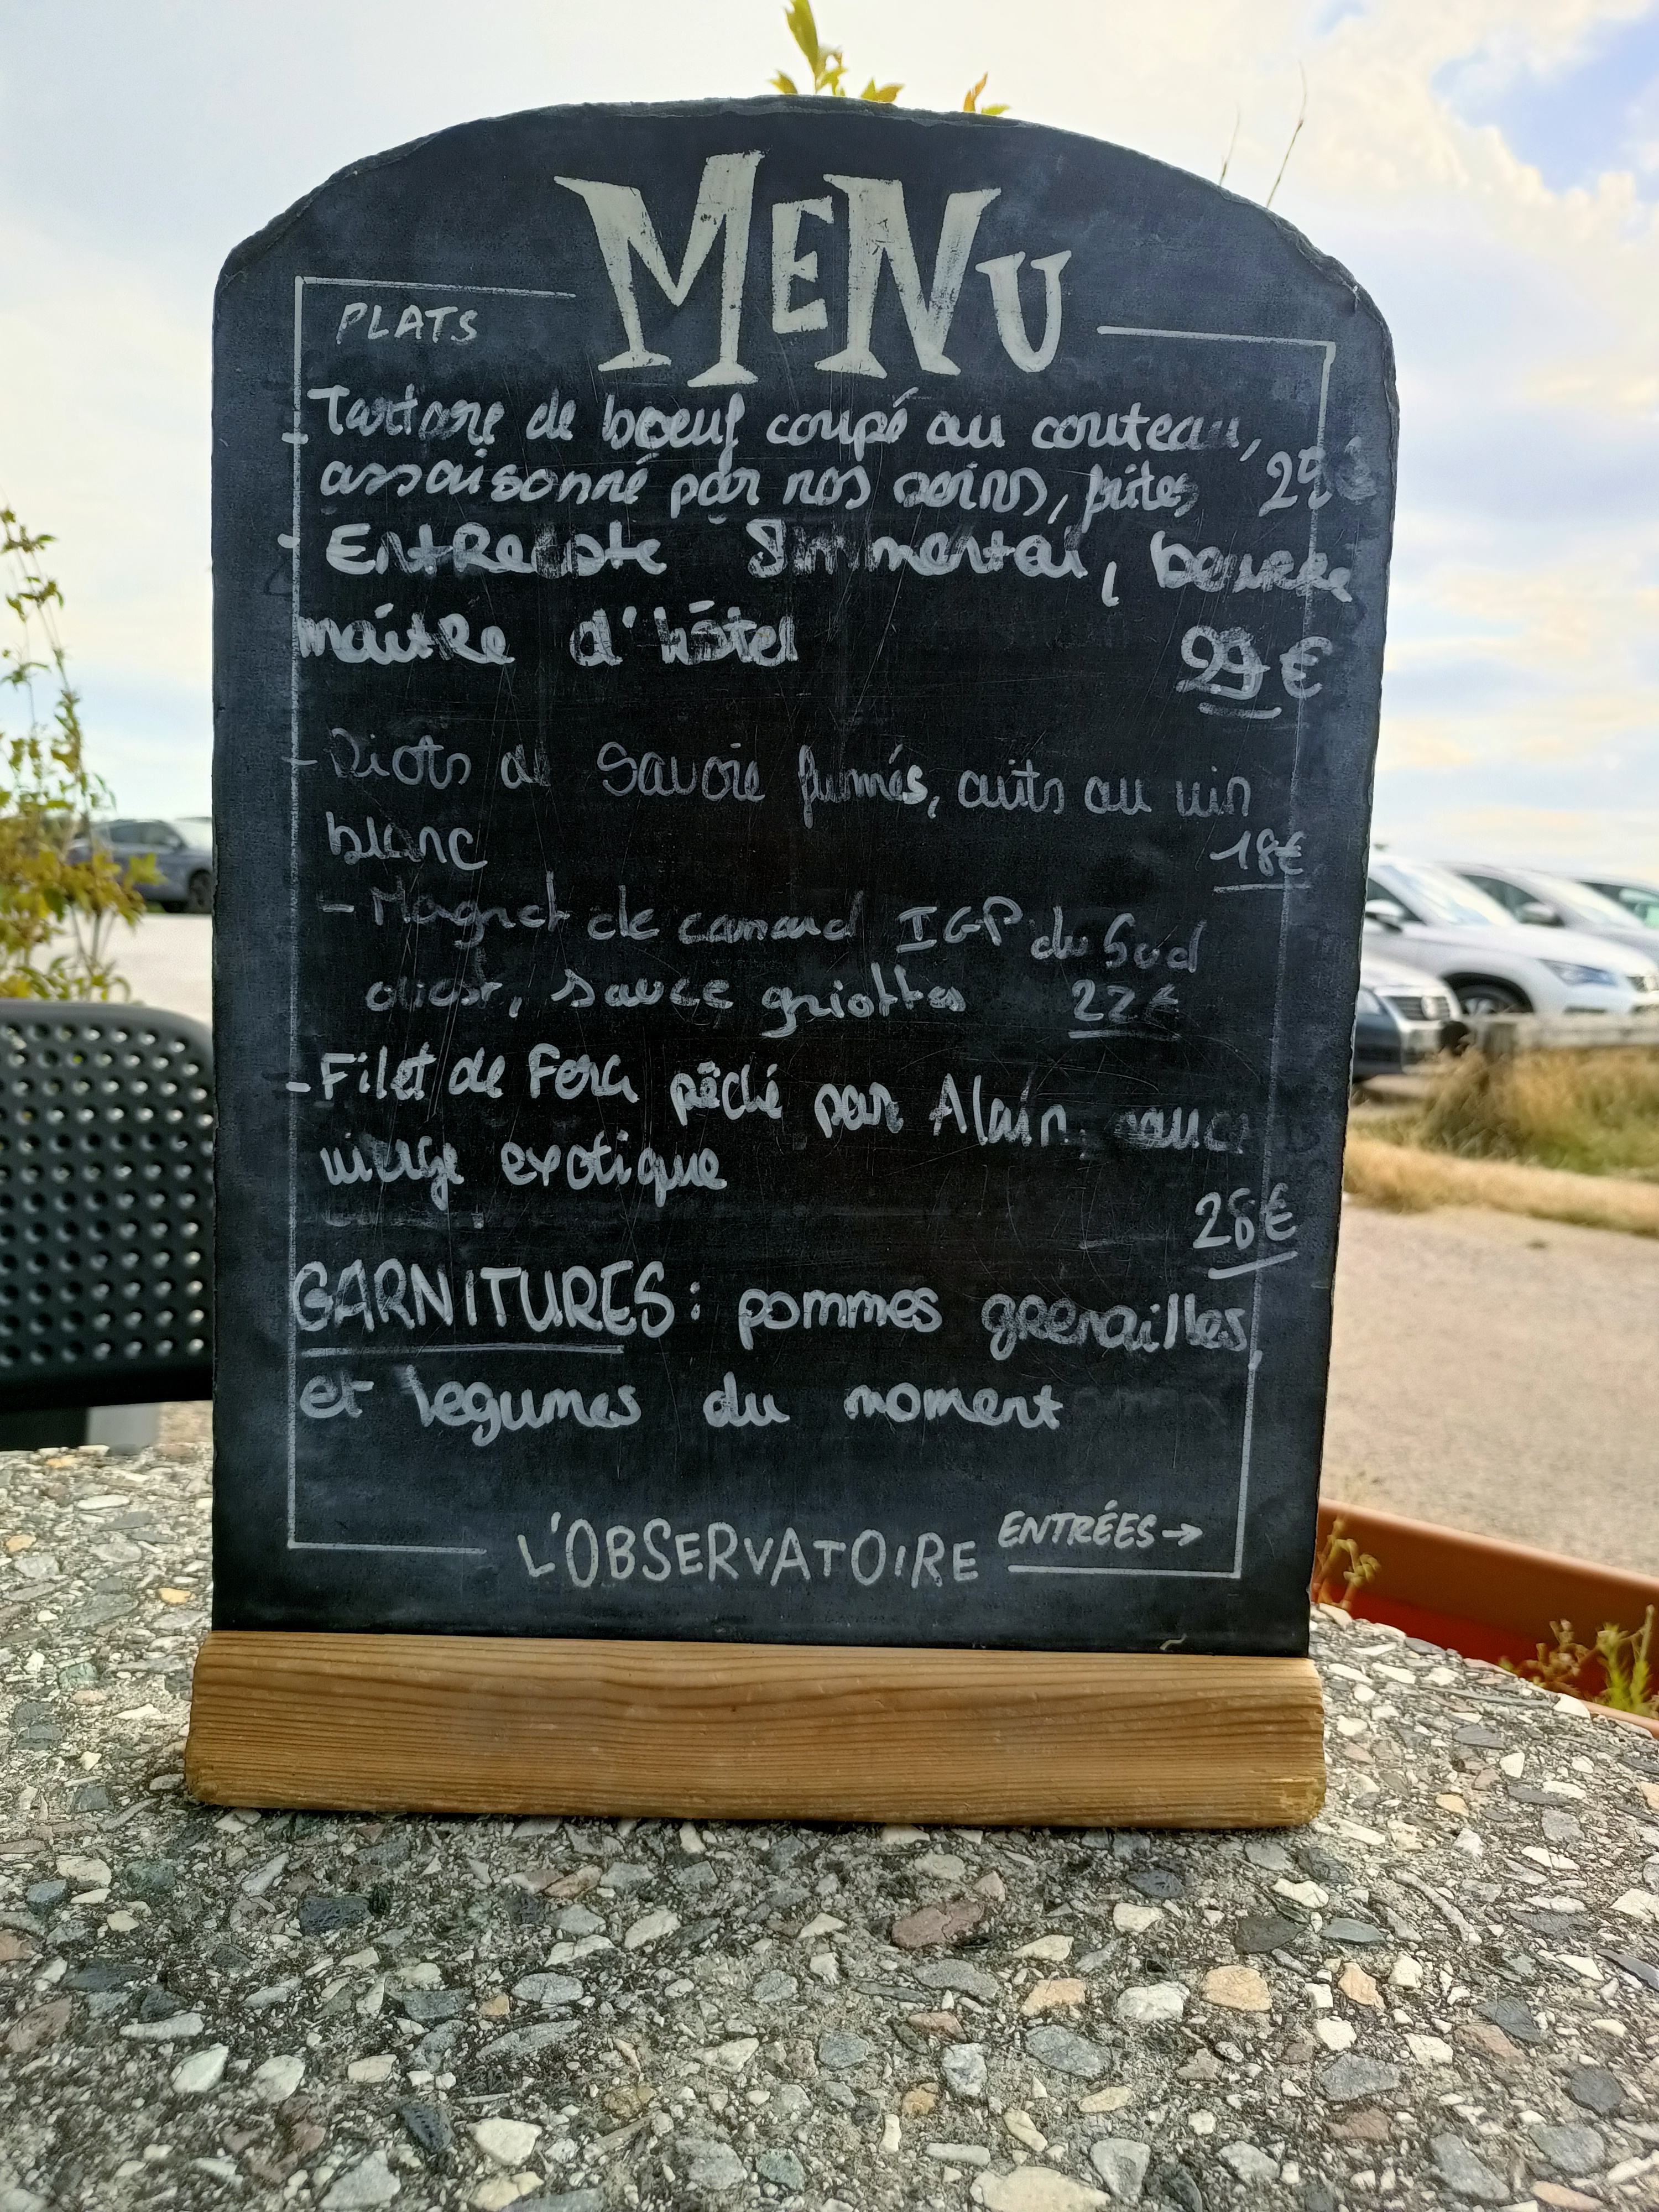 MENU
PLATS
- Tartare de bœuf coupé au couteau,
assaisonné par nos soins, frites
- Entrecôte Simmental, beurre
maître d'hôtel 29€
- Diots de Savoie fumés, cuits au vin
blanc 18€
- Magret de canard IGP du Sud
ouest, sauce griottes 22€
- Filet de Fera pêché par Alain, sauce
vierge exotique
26€
GARNITURES: pommes grenailles,
et legumes du moment
L'OBSERVATOIRE ENTRÉES→